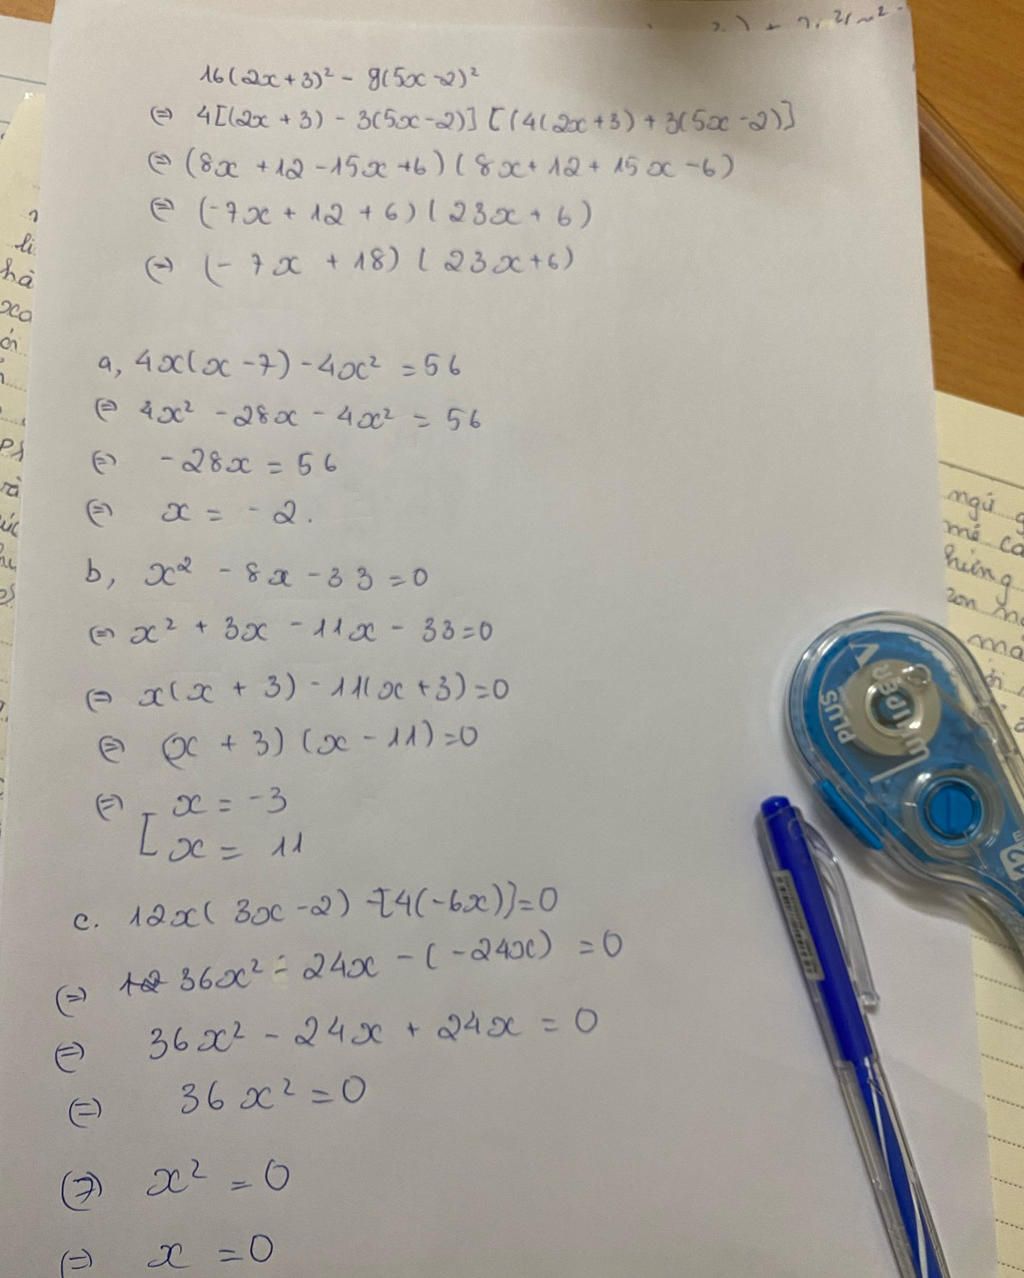 16(2x+3)² - 9(5x-2)²
(=) 4[(2x + 3) - 3(5x-2)] [(4(2x+3) + 3(5x-2)]
(=) (8x + 12 - 15x + 6) (8x + 12 + 15x - 6)
(=) (-7x + 12 + 6) (23x + 6)
(=) (-7x + 18) (23x+6)
a, 4x(x-7) - 4x² = 56
(=) 4x² - 28x - 4x² = 56
(=) -28x = 56
(=) x = -2.
b, x² - 8x - 33 = 0
(=) x² + 3x - 11x - 33 = 0
(=) x(x + 3) - 11(x + 3) = 0
(=) (x + 3) (x - 11) = 0
(=) [ x = -3
x = 11
c. 12x(3x-2) - [4(-6x)] = 0
(=) 36x² - 24x - (-24x) = 0
(=) 36x² - 24x + 24x = 0
(=) 36x² = 0
(=) x² = 0
(=) x = 0
ngủ
hùng
PLUS
WHIPER